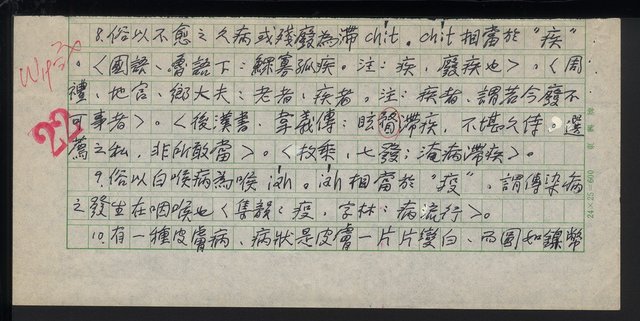 8.俗以不愈之久病或殘廢為滯 chi̍t。chi̍t 相當於“疾”
。〈國語、魯語下：鰥寡孤疾。注：疾、廢疾也〉、〈周
禮、地官、鄉大夫：老者、疾者。注：疾者、謂若今廢不
可事者〉。〈後漢書、韋義傳：眩瞀滯疾、不堪久待。選
薦之私、非所敢當〉。〈枚乘、七發：淹病滯疾〉。
9.俗以白喉病為喉 ia̍h。ia̍h 相當於“疫”、謂傳染病
之發生在咽喉也〈集韻：疫、字林：病流行〉。
10.有一種皮膚病、病狀是皮膚一片片變白、而圓如鎳幣
22
24×25=600